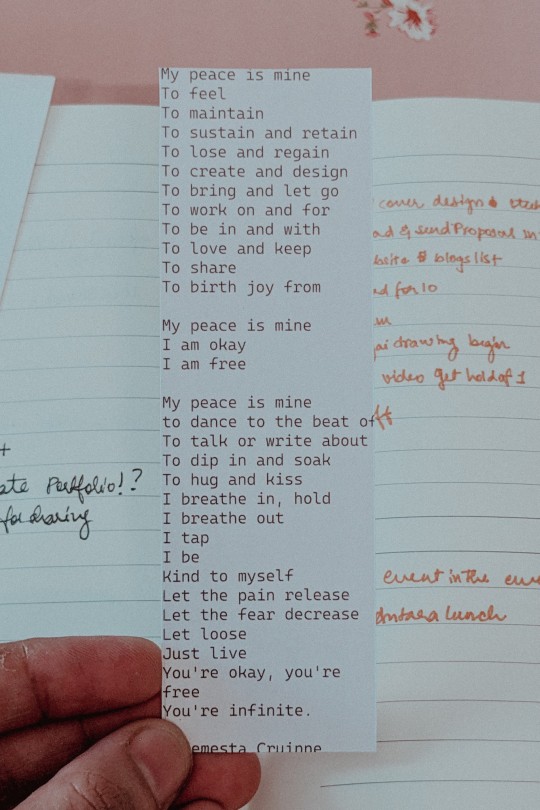 My peace is mine
To feel
To maintain
To sustain and retain
To lose and regain
To create and design
To bring and let go
To work on and for
To be in and with
To love and keep
To share
To birth joy from
My peace is mine
I am okay
I am free
My peace is mine
to dance to the beat of
To talk or write about
To dip in and soak
To hug and kiss
I breathe in, hold
I breathe out
I tap
I be
Kind to myself
Let the pain release
Let the fear decrease
Let loose
Just live
You're okay, you're
free
You're infinite.
Cruinne
Portfolio!?
for sharing
cover design
& send Proposal
& blogs list
for 10
drawing begin
video get hold of 1
event in the
lunch